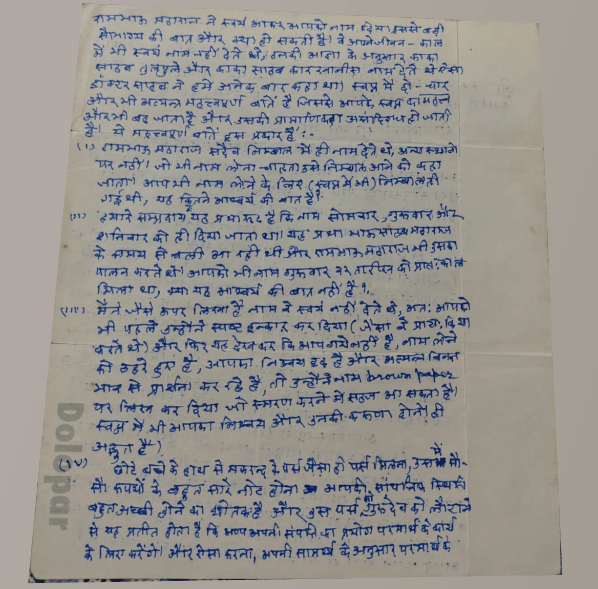 रामभाऊ महाराज ने स्वयं आकर आपको नाम दिया इससे बड़ी
सौभाग्य की बात और क्या हो सकती है। वे अपने जीवन-काल
में भी स्वयं नाम नहीं देते थे, उनकी आज्ञा के अनुसार काका
साहब तुलपुले और काका साहब कारखानीस नाम देते थे ऐसा
डॉक्टर साहब ने हमें अनेक बार कहा था। स्वप्न में दो-चार
और भी अत्यन्त महत्त्वपूर्ण बातें हैं जिससे आपके स्वप्न का महत्त्व
और भी बढ़ जाता है और उसकी प्रामाणिकता असंदिग्ध हो जाती
है। ये महत्त्वपूर्ण बातें इस प्रकार हैं:-
(i) रामभाऊ महाराज सदैव निम्बाल में ही नाम देते थे, अन्य स्थानों
पर नहीं। जो भी नाम लेना चाहता उसे निम्बाल आने को कहा
जाता। आप भी नाम लेने के लिए (स्वप्न में भी) निम्बाल ही
गई थी, यह कितने आश्चर्य की बात है?
(ii) हमारे सम्प्रदाय में यह प्रथा रूढ़ है कि नाम सोमवार, गुरुवार और
शनिवार को ही दिया जाता था। यह प्रथा भाऊसाहब महाराज
के समय से चली आ रही थी और रामभाऊ महाराज भी उसका
पालन करते थे। आपको भी नाम गुरुवार २२ तारीख को प्रातःकाल
मिला था, क्या यह आश्चर्य की बात नहीं है?
(iii) मैंने जैसे ऊपर लिखा है नाम वे स्वयं नहीं देते थे, अतः आपको
भी पहले उन्होंने स्पष्ट इन्कार कर दिया (जैसा वे प्रायः किया
करते थे) और फिर यह देखकर कि आप गये नहीं हैं, नाम लेने
को ठहरे हुए हैं, आपका निश्चय दृढ़ है और अत्यन्त विनम्र
भाव से प्रार्थना कर रहे हैं, तो उन्होंने नाम brown paper
पर लिख कर दिया जो स्मरण करने में सहज आ सकता है।
स्वप्न में भी आपका निश्चय और उनकी करुणा दोनों ही
अद्भुत हैं।
(iv) छोटे बच्चे के हाथ से मकरन्द के पर्स जैसा ही पर्स मिलना, उसमें सौ-
सौ रूपयों के बहुत सारे नोट होना आपकी सांपत्तिक स्थिति
बहुत अच्छी होने का द्योतक है और इस पर्स को गुरुदेव को लौटाने
से यह प्रतीत होता है कि आप अपनी संपत्ति का प्रयोग परमार्थ के कार्य
के लिए करेंगे। और ऐसा करना, अपनी सामर्थ्य के अनुसार परमार्थ के
Dolopar